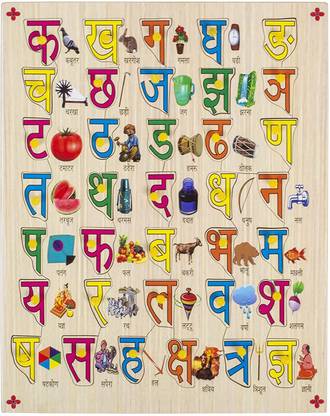 क ख ग घ ङ
कबूतर खरगोश गमला घड़ी
च छ ज झ ञ
चरखा जग झरना
ट ठ ड ढ ण
टमाटर ठठेरा डमरू ढोलक
त थ द ध न
तरबूज थरमस दवात धनुष नल
प फ ब भ म
पतंग फल बकरी भालू मछली
य र ल व श
यज्ञ रथ लट्टू वर्षा शलगम
ष स ह क्ष त्र ज्ञ
षटकोण सपेरा हल क्षत्रिय त्रिशूल ज्ञानी